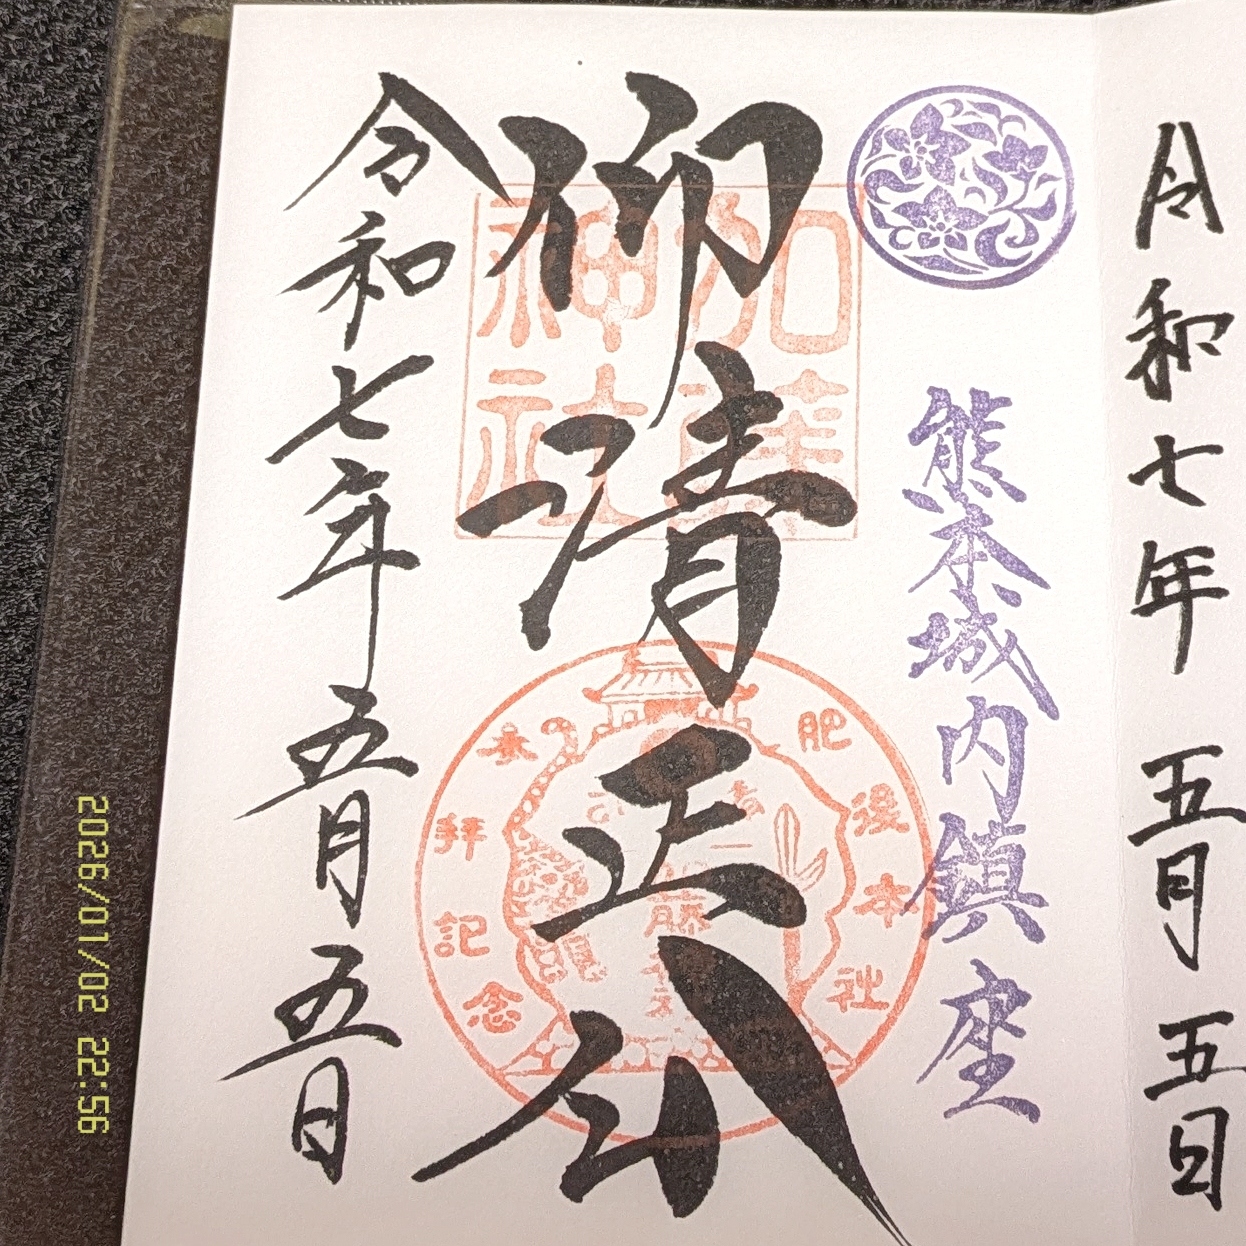 令和七年五月五日
熊本城内鎮座
仰清正公
加藤
神社
肥後本社
参拝記念
令和七年五月五日
2026/01/02 22:56